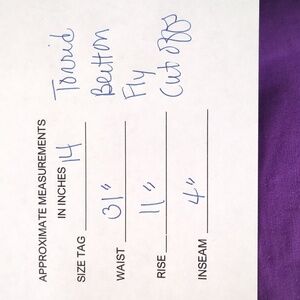 APPROXIMATE MEASUREMENTS
IN INCHES
SIZE TAG 14
WAIST 31"
RISE 11"
INSEAM 4"
Torrid
Button
Fly
Cut offs